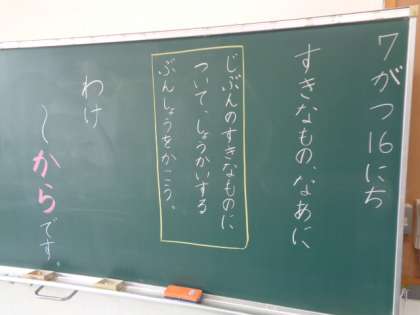 7がつ16にち
すきなもの、なあに
じぶんのすきなものに
ついて、しょうかいする
ぶんしょうをかこう。
わけ
〜からです。